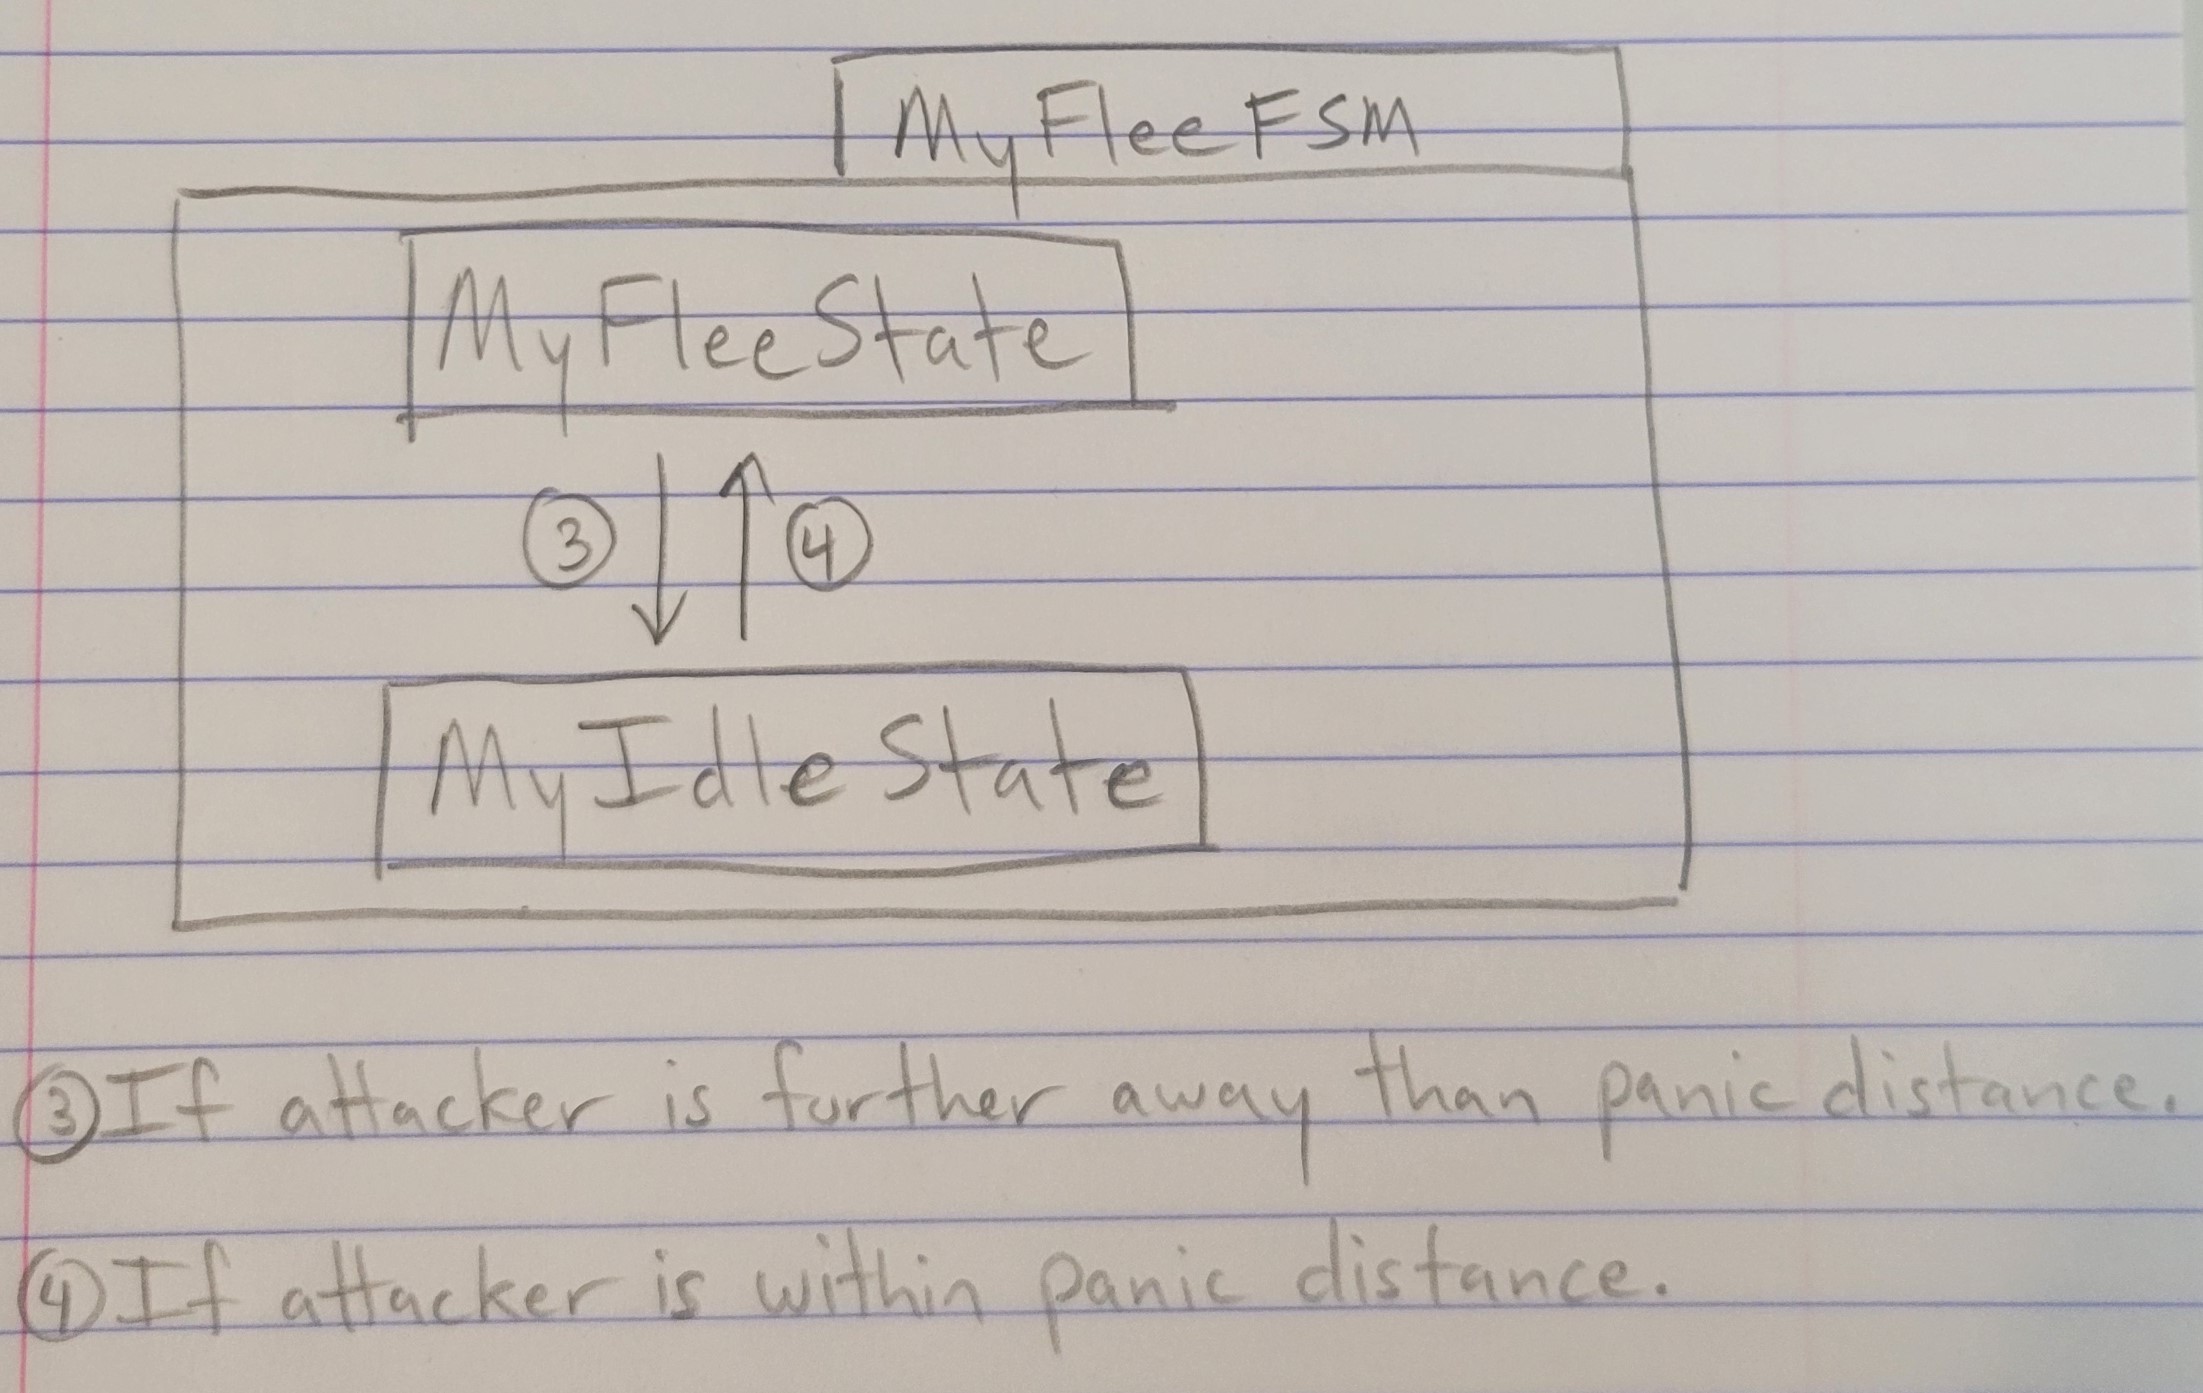 MyFleeFSM
MyFleeState
③ ④
MyIdleState
③ If attacker is further away than panic distance.
④ If attacker is within panic distance.